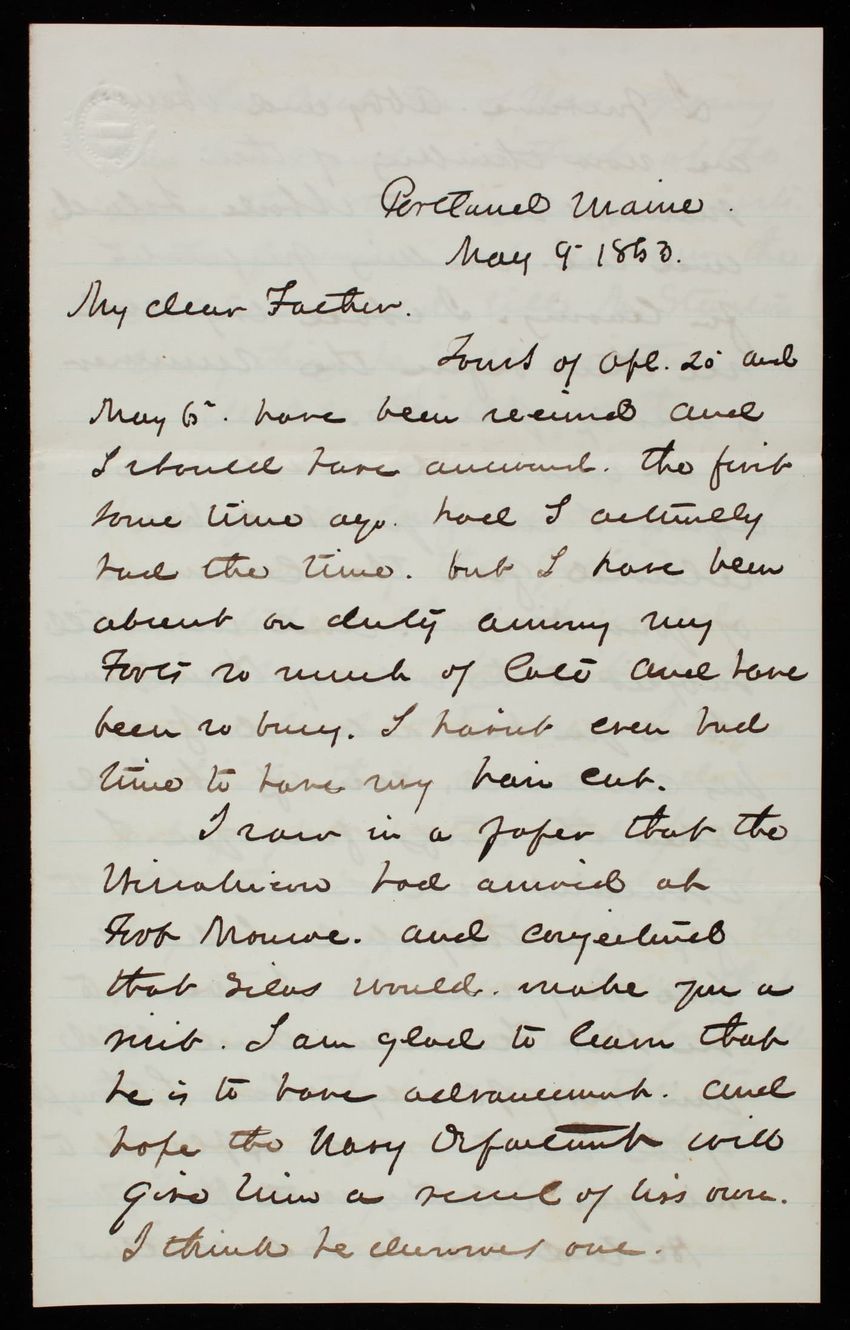 Portland Maine.
May 9 1863.
My dear Father.
Yours of Apl. 25 and
May 6th. have been received and
I should have answered. the first
some time ago. had I actually
had the time. but I have been
absent on duty among my
Forts so much of late and have
been so busy. I havent even had
time to have my hair cut.
I saw in a paper that the
had arrived at
Fort Monroe. and conjectured
that Silas would. make you a
visit. I am glad to learn that
he is to have advancement. and
hope the Navy Department will
give him a vessel of his own.
I think he deserves one.